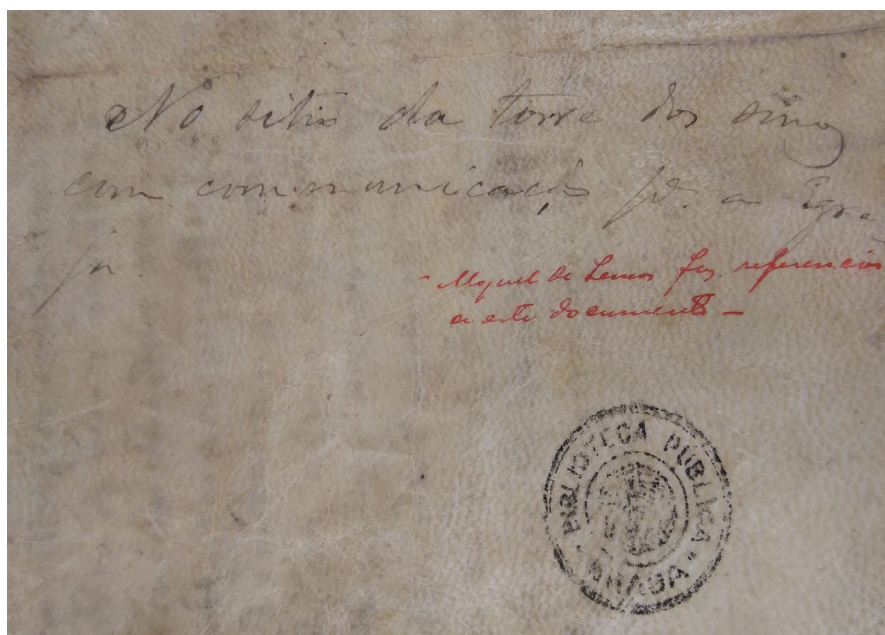 No sitio da torre dos sinos
com communicação p.ª a Egre
ja.
- Miguel de Lemos fez referencias
a este documento -
BIBLIOTECA PÚBLICA
BRAGA